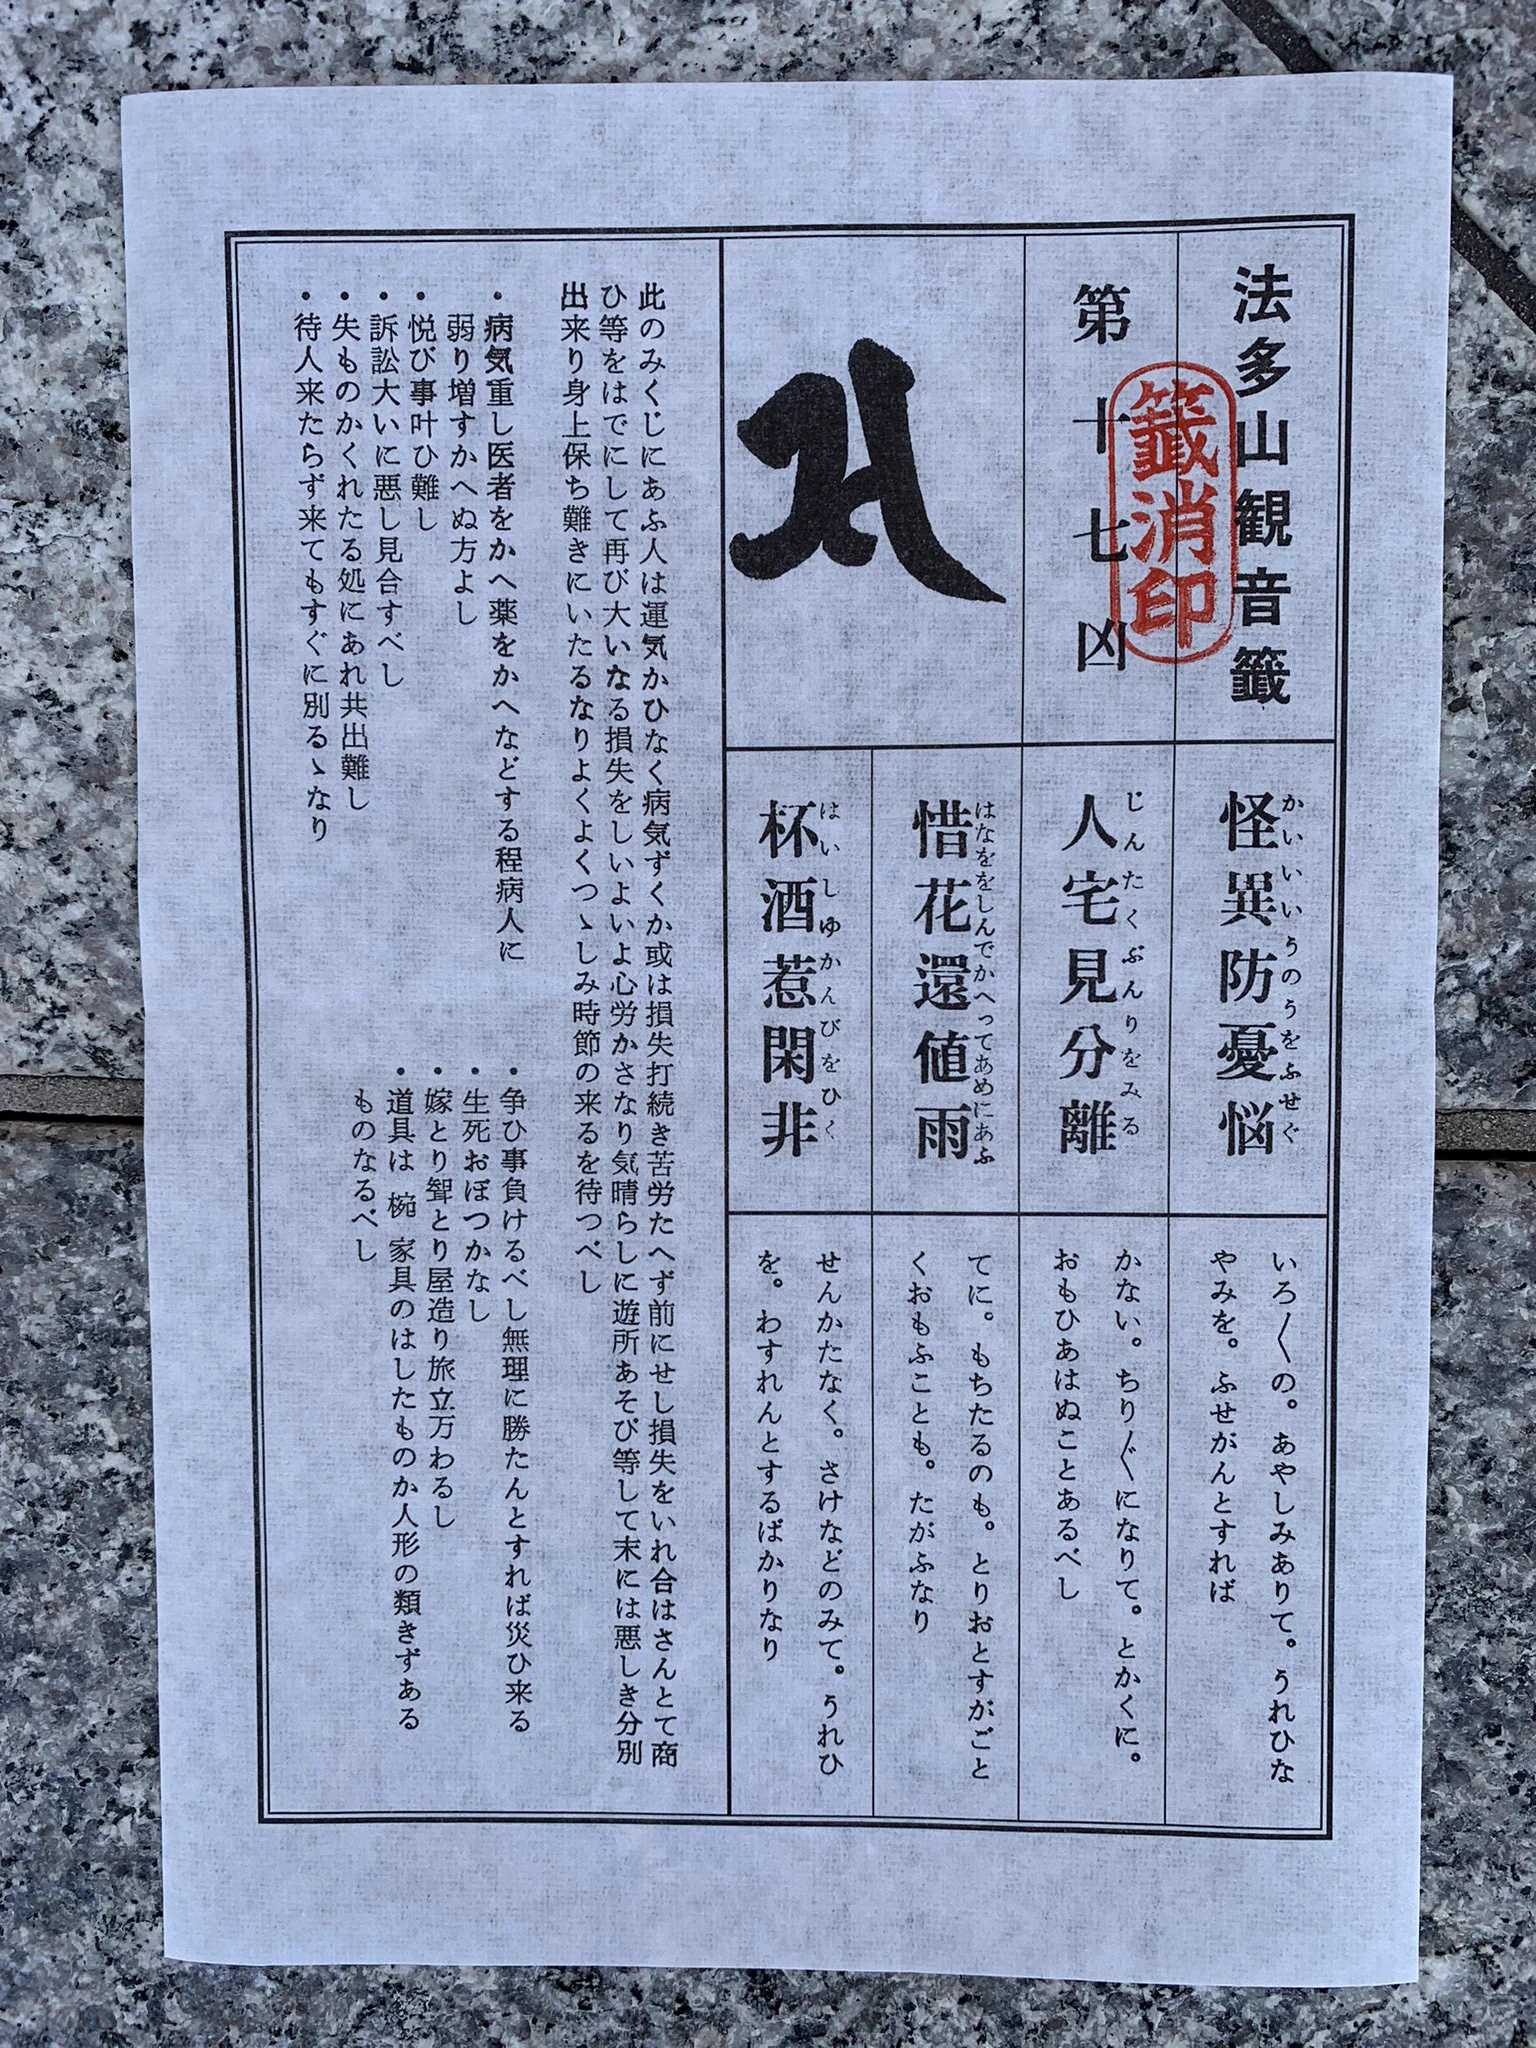 法多山観音籤
籤消印
第十七凶
怪異防憂悩
かいいいうのうをふせぐ
いろ〱の。あやしみありて。うれひな
やみを。ふせがんとすれば
人宅見分離
じんたくぶんりをみる
かない。ちり〲になりて。とかくに。
おもひあはぬことあるべし
惜花還値雨
はなををしんでかへってあめにあふ
てに。もちたるのも。とりおとすがごと
くおもふことも。たがふなり
杯酒惹閑非
はいしゆかんびをひく
せんかたなく。さけなどのみて。うれひ
を。わすれんとするばかりなり
此のみくじにあふ人は運気かひなく病気ずくか或は損失打続き苦労たへず前にせし損失をいれ合はさんとて商
ひ等をはでにして再び大いなる損失をしいよいよ心労かさなり気晴らしに遊所あそび等して末には悪しき分別
出来り身上保ち難きにいたるなりよくよくつゝしみ時節の来るを待つべし
・病気重し医者をかへ薬をかへなどする程病人に
弱り増すかへぬ方よし
・悦び事叶ひ難し
・訴訟大いに悪し見合すべし
・失ものかくれたる処にあれ共出難し
・待人来たらず来てもすぐに別るゝなり
・争ひ事負けるべし無理に勝たんとすれば災ひ来る
・生死おぼつかなし
・嫁とり聟とり屋造り旅立万わるし
・道具は 椀 家具のはしたものか人形の類きずある
ものなるべし